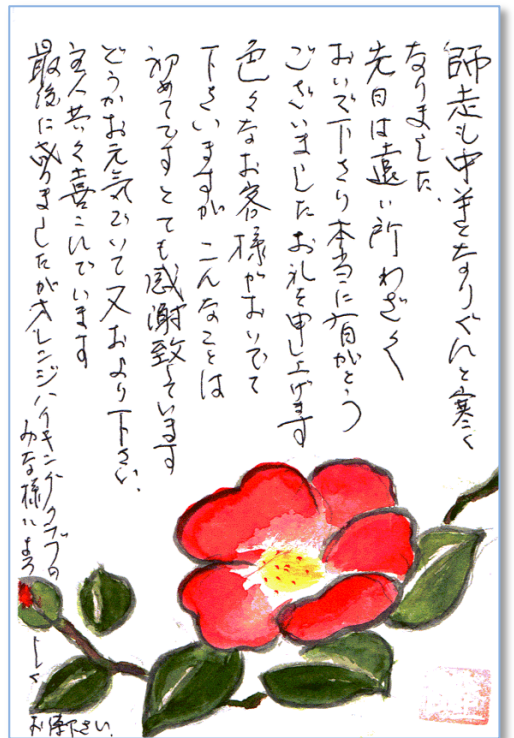 師走も中半となりぐんと寒く
なりました、
先日は遠い所わざ〱
おいで下さり本当に有がとう
ございました お礼を申し上げます
色々なお客様がおいでて
下さいますが こんなことは
初めてですとても感謝致しています
どうかお元気でいて又およ り下さい、
主人共々喜こんでいます
最後に成りましたがオレンジハイキングクラブの
みな様によろしく
お伝下さい、